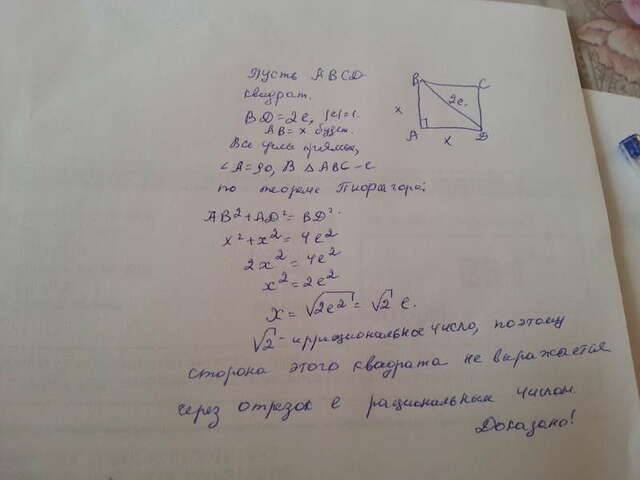 Пусть ABCD
квадрат.
BD=2e, |e|=1.
AB=x будет.
Все углы прямые,
∠A=90, В △ABC-е
по теореме Пифагора;
AB²+AD²=BD².
x²+x²=4e²
2x²=4e²
x²=2e²
x=√2e²=√2 e.
√2-иррациональное число, поэтому
сторона этого квадрата не выражается
через отрезок e рациональным числом.
Доказано!
B C
2e.
x
A B
x